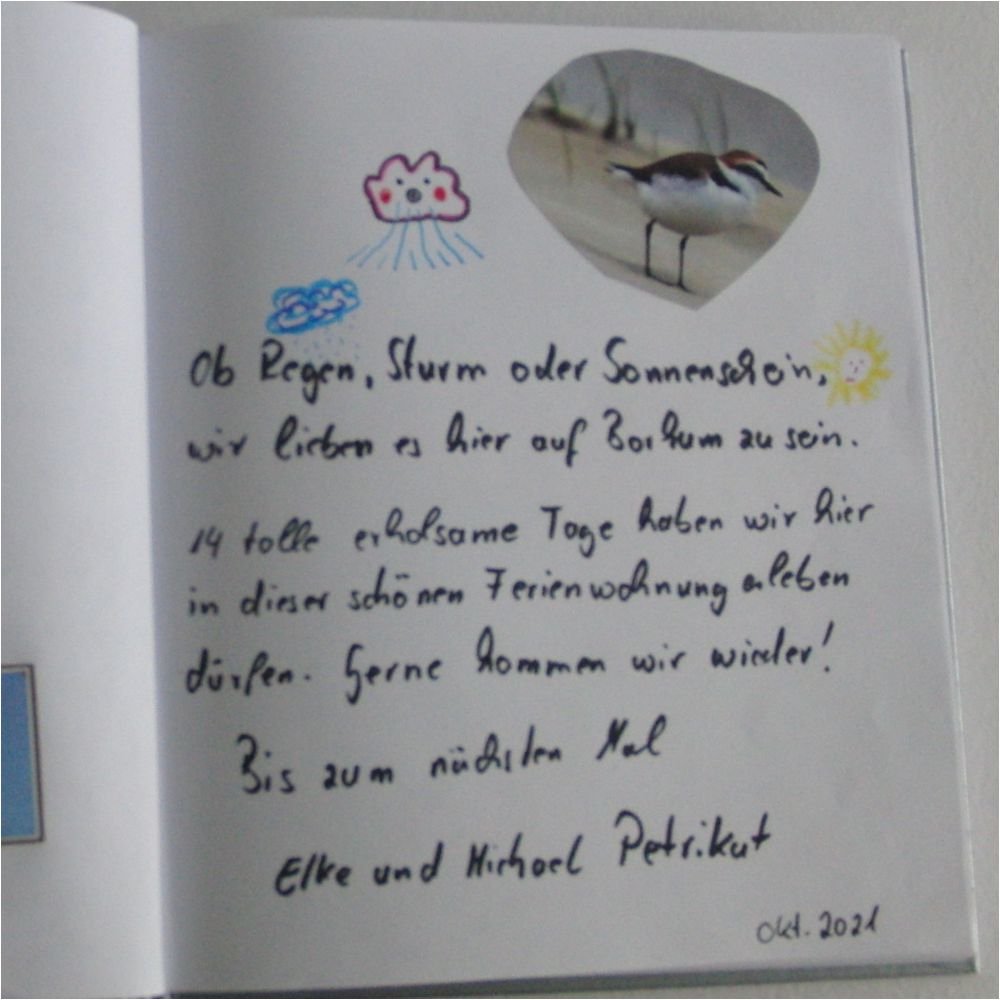 Ob Regen, Sturm oder Sonnenschein,
wir lieben es hier auf Borkum zu sein.
14 tolle erholsame Tage haben wir hier
in dieser schönen Ferienwohnung erleben
dürfen. Gerne kommen wir wieder!
Bis zum nächsten Mal
Elke und Michael Petrikat
Okt. 2021